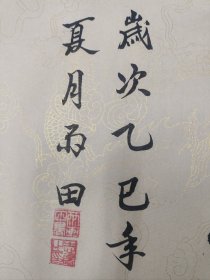 歲次乙巳年
夏月雨田